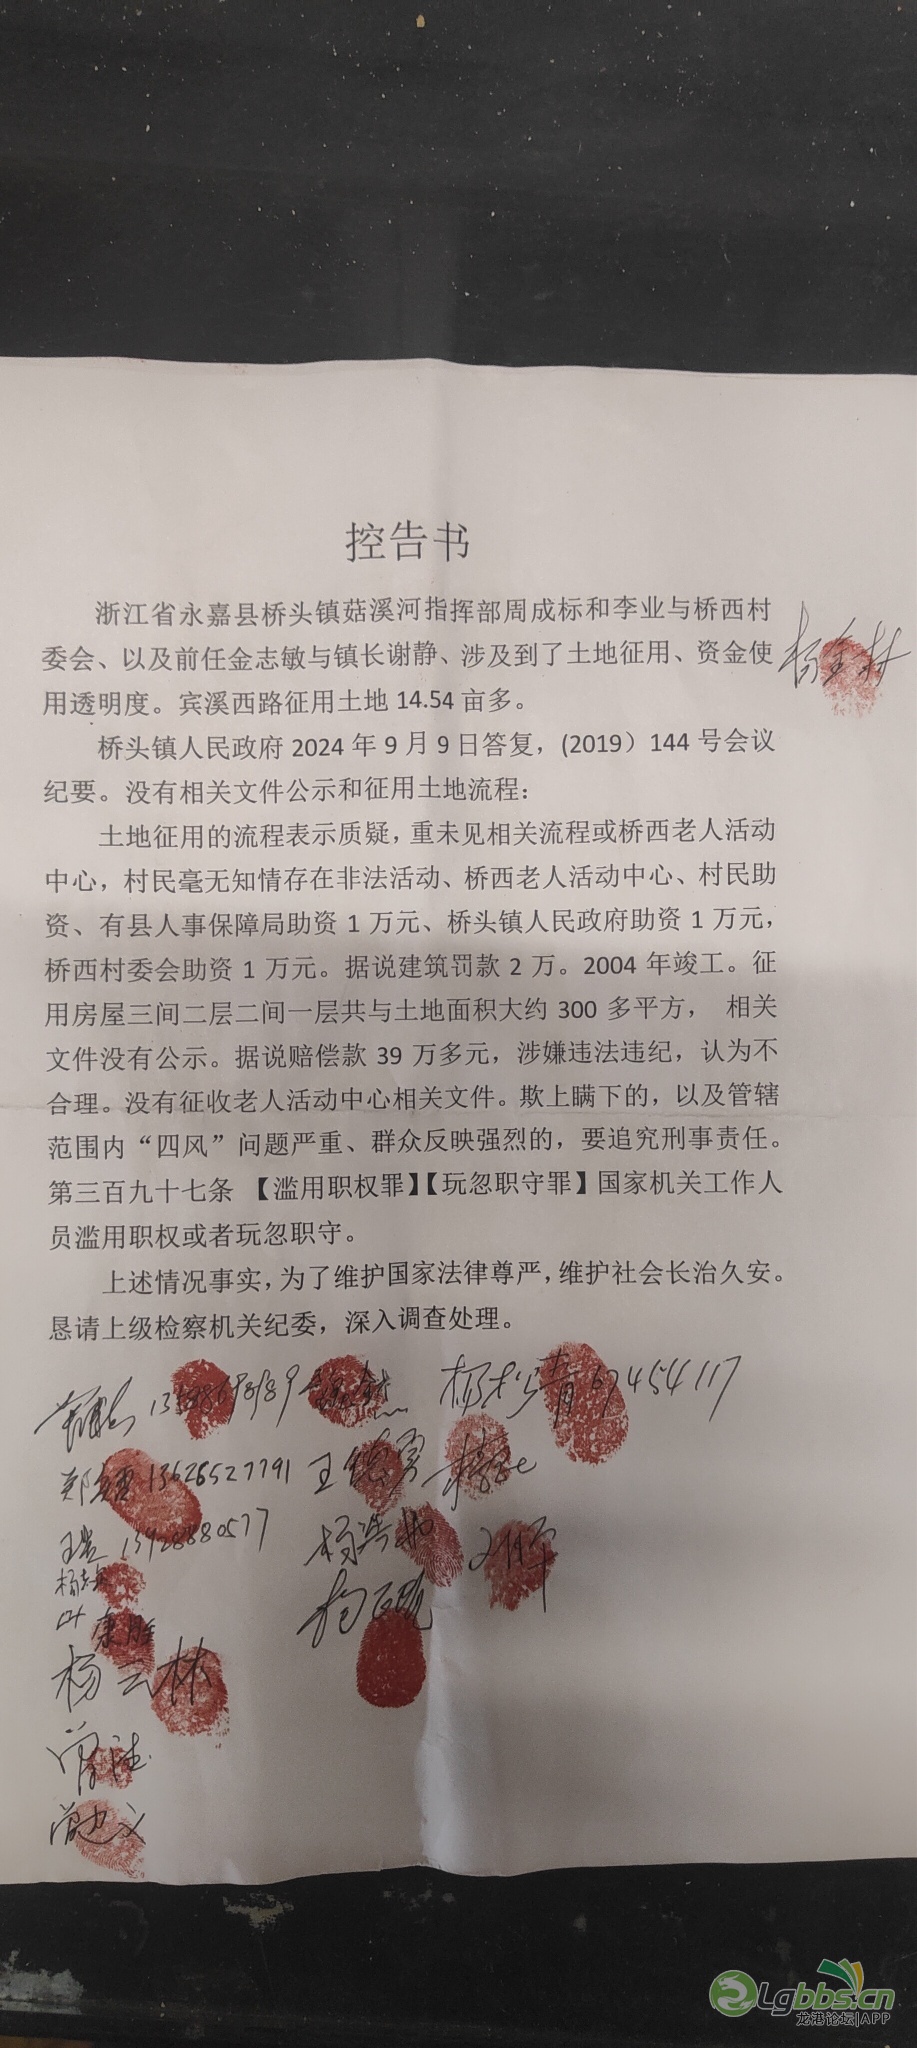 控告书
浙江省永嘉县桥头镇菇溪河指挥部周成标和李业与桥西村
委会、以及前任金志敏与镇长谢静、涉及到了土地征用、资金使
用透明度。宾溪西路征用土地 14.54 亩多。
桥头镇人民政府 2024 年 9 月 9 日答复，(2019）144 号会议
纪要。没有相关文件公示和征用土地流程：
土地征用的流程表示质疑，重未见相关流程或桥西老人活动
中心，村民毫无知情存在非法活动、桥西老人活动中心、村民助
资、有县人事保障局助资 1 万元、桥头镇人民政府助资 1 万元，
桥西村委会助资 1 万元。据说建筑罚款 2 万。2004 年竣工。征
用房屋三间二层二间一层共与土地面积大约 300 多平方， 相关
文件没有公示。据说赔偿款 39 万多元，涉嫌违法违纪，认为不
合理。没有征收老人活动中心相关文件。欺上瞒下的，以及管辖
范围内“四风”问题严重、群众反映强烈的，要追究刑事责任。
第三百九十七条 【滥用职权罪】【玩忽职守罪】国家机关工作人
员滥用职权或者玩忽职守。
上述情况事实，为了维护国家法律尊严，维护社会长治久安。
恳请上级检察机关纪委，深入调查处理。
13626527791
康胜
杨云林
Lgbbs.cn
龙港论坛|APP